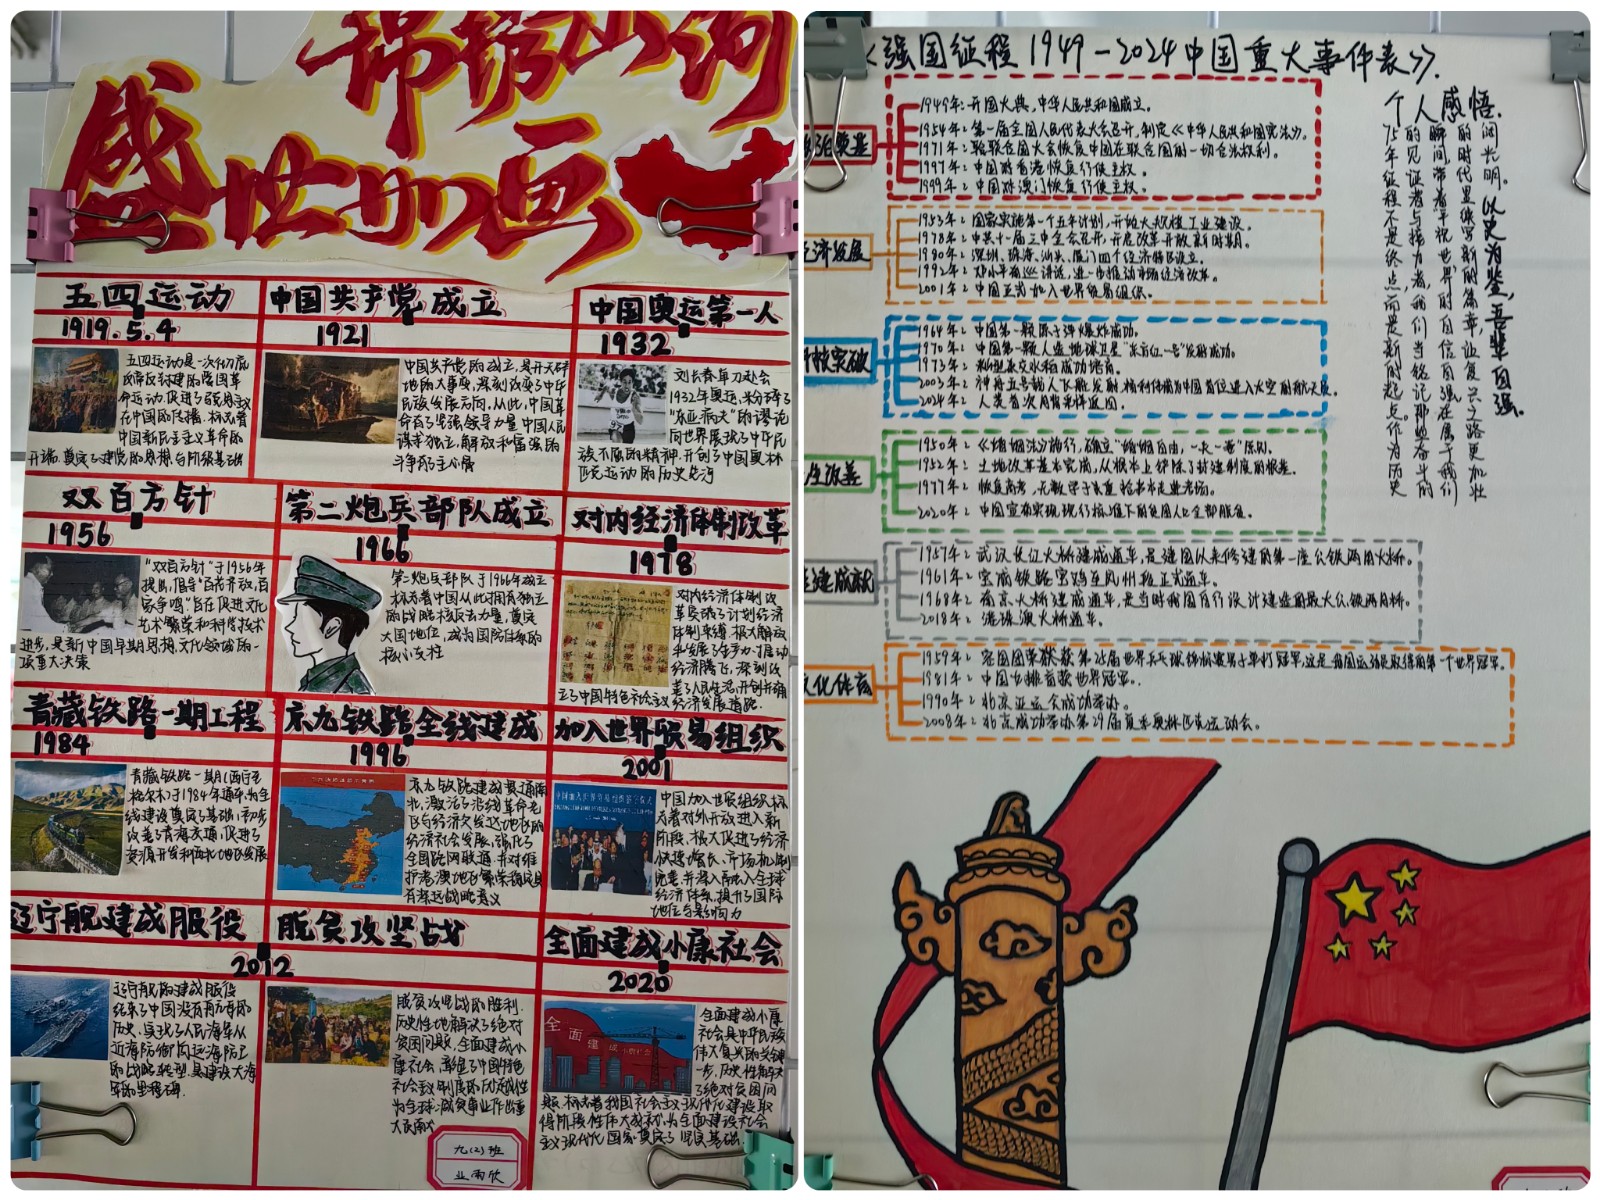 锦绣山河
盛世如画
五四运动
1919.5.4
五四运动是一次彻底
反帝反封建的爱国革
命运动,促进了马克思主义
在中国的传播,标志着
中国新民主主义革命的
开端,奠定了建党的思想与阶级基础
中国共产党成立
1921
中国共产党的成立,是开天辟
地的大事变,深刻改变了中华
民族发展方向,从此,中国革
命有了坚强领导力量,中国人民
谋求独立、解放和富强的
斗争有了主心骨
中国奥运第一人
1932
刘长春单刀赴会
1932年奥运,粉碎了
“东亚病夫”的谬论
向世界展现了中华民
族不屈的精神,开创了中国奥林
匹克运动的历史先河
双百方针
1956
“双百方针”于1956年
提出,倡导“百花齐放,百
家争鸣”旨在促进文化
艺术繁荣和科学技术
进步,是新中国早期思想、文化领域的一
项重大决策
第二炮兵部队成立
1966
第二炮兵部队于1966年成立
标志着中国从此拥有独立
的战略核反击力量,奠定
大国地位,成为国防体系的
核心支柱
对内经济体制改革
1978
对内经济体制改
革突破了计划经济
体制束缚,极大解放
和发展了生产力,推动
经济腾飞,深刻改
善了人民生活,开创并确
立了中国特色社会主义
经济发展道路.
青藏铁路一期工程
1984
青藏铁路一期(西宁至
格尔木)于1984年通车,为全
线建设奠定了基础,初步
改善了青海交通,促进了
资源开发和西北地区发展
京九铁路全线建成
1996
京九铁路建成贯通南
北,激活了沿线革命老
区与经济欠发达地区的
经济社会发展,强化了
全国路网联通,并对维
护港澳地区繁荣稳定具
有深远战略意义
加入世界贸易组织
2001
中国加入世贸组织标
志着对外开放进入新
阶段,极大促进了经济
快速增长、市场机制
完善,并深入融入全球
经济体系,提升了国际
地位与影响力
辽宁舰建成服役
2012
辽宁舰的建成服役
结束了中国没有航母的
历史,实现了人民海军从
近海防御向远海防卫
的战略转型,是建设大海
军的里程碑.
脱贫攻坚战
脱贫攻坚战的胜利,
历史性地解决了绝对
贫困问题,全面建成小
康社会,彰显了中国特色
社会主义制度的优越性
为全球减贫事业作出重
大贡献
全面建成小康社会
2020
全面建成小康
全面建成小康
社会是中华民族
伟大复兴的关键
一步,历史性解决
了绝对贫困问
题,标志着我国社会主义现代化建设取
得阶段性伟大成就,为全面建设社会
主义现代化国家奠定了坚实基础.
九(2)班
业雨欣
《强国征程1949-2024中国重大事件表》.
1949年:开国大典,中华人民共和国成立。
1954年:第一届全国人民代表大会召开,制定《中华人民共和国宪法》。
1971年:第联合国大会恢复中国在联合国的一切合法权利。
1997年:中国对香港恢复行使主权。
1999年:中国对澳门恢复行使主权。
经济发展
1953年:国家实施第一个五年计划,开始大规模工业建设。
1978年:中共十一届三中全会召开,开启改革开放新时期。
1980年:深圳、珠海、汕头、厦门四个经济特区设立。
1992年:邓小平南巡讲话,进一步推动市场经济改革。
2001年:中国正式加入世界贸易组织。
科技突破
1964年:中国第一颗原子弹爆炸成功。
1970年:中国第一颗人造地球卫星“东方红一号”发射成功。
1973年:籼型杂交水稻成功培育。
2003年:神舟五号载人飞船发射,杨利伟成为中国首位进入太空的航天员。
2024年:人类首次月背采样返回。
民生改善
1950年:《婚姻法》施行,确立“婚姻自由,一夫一妻”原则。
1952年:土地改革基本完成,从根本上铲除了封建制度的根基。
1977年:恢复高考,无数学子重拾书本走进考场。
2020年:中国宣布实现现行标准下的贫困人口全部脱贫。
基建成就
1957年:武汉长江大桥建成通车,是建国以来修建的第一座公铁两用大桥。
1961年:宝成铁路宝鸡至凤州段正式通车。
1968年:南京大桥建成通车,是当时我国自行设计建造的最大公铁两用桥。
2018年:港珠澳大桥通车。
文化体育
1959年:容国团荣获获第25届世界乒乓球锦标赛男子单打冠军,这是我国运动员取得的第一个世界冠军。
1981年:中国女排首获世界冠军。
1990年:北京亚运会成功举办。
2008年:北京成功举办第29届夏季奥林匹克运动会。
个人感悟.
75年征程不是终点,而是新的起点。作为历史
的见证者与接力者,我们当铭记那些奋斗的
瞬间,带着平视世界的自信自强,在属于我们
的时代里续写新的篇章,让复兴之路更加壮
阔光明。以史为鉴,吾辈自强.